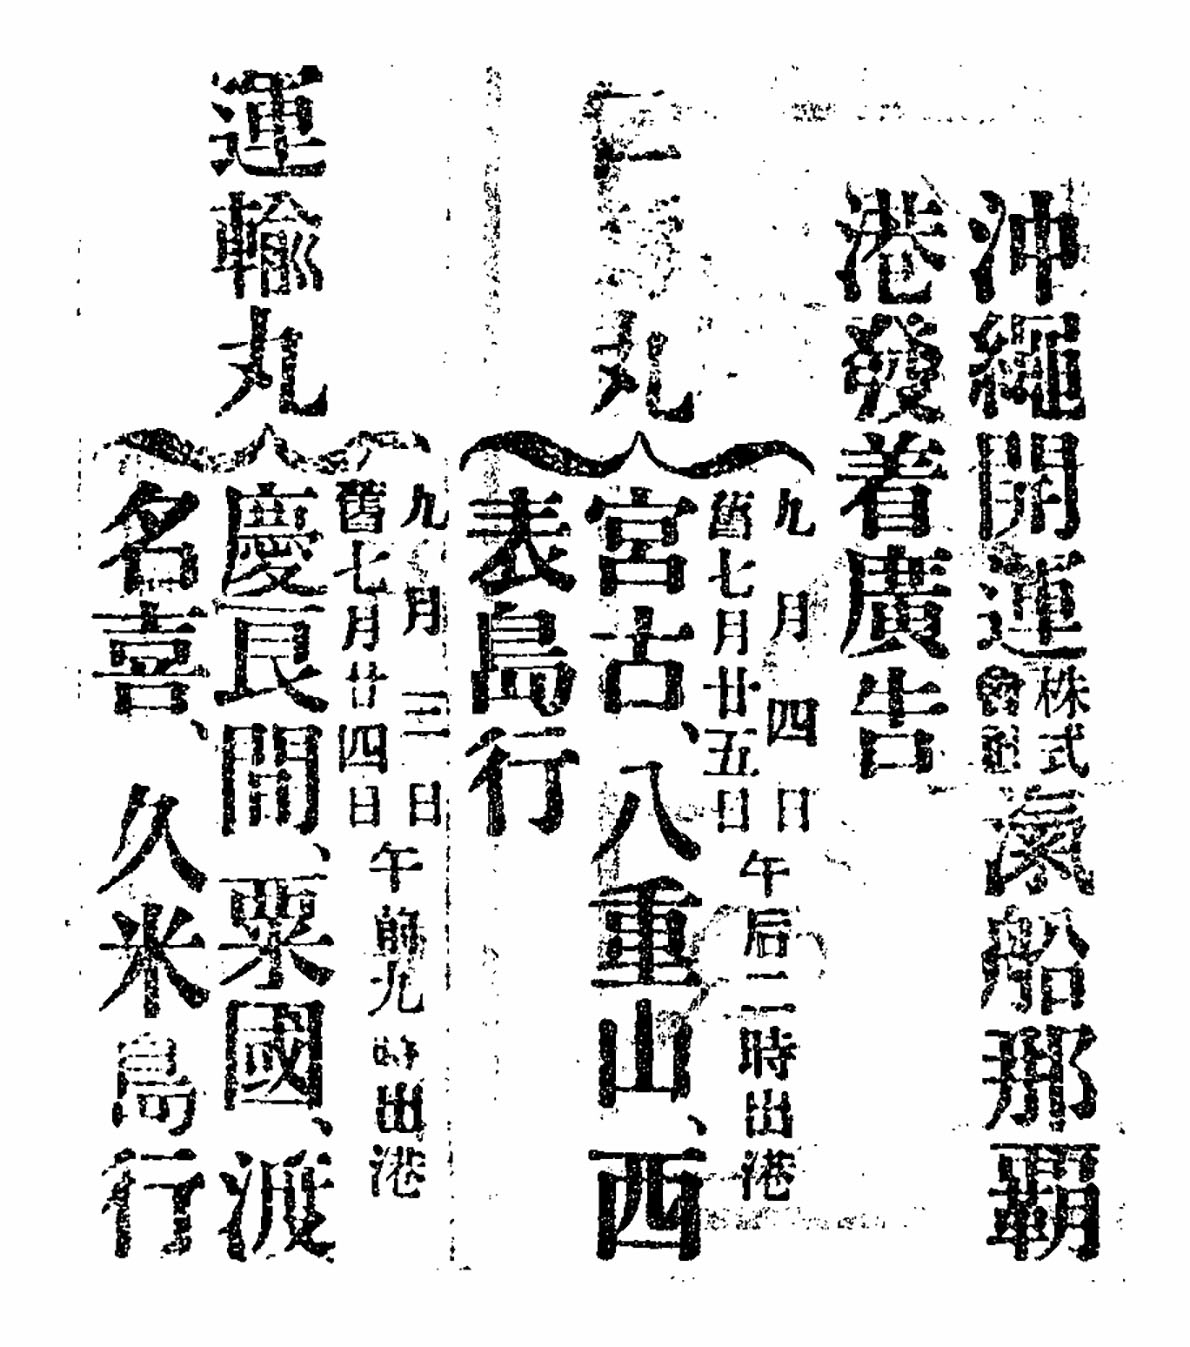 沖繩開運株式會社滊船那覇
港發着廣告
丸
九月四日
舊七月廿五日
午后二時出港
宮古、八重山、西
表島行
運輸丸
九月三日
舊七月廿四日
午前九時出港
慶良間、粟國、渡
名喜、久米島行